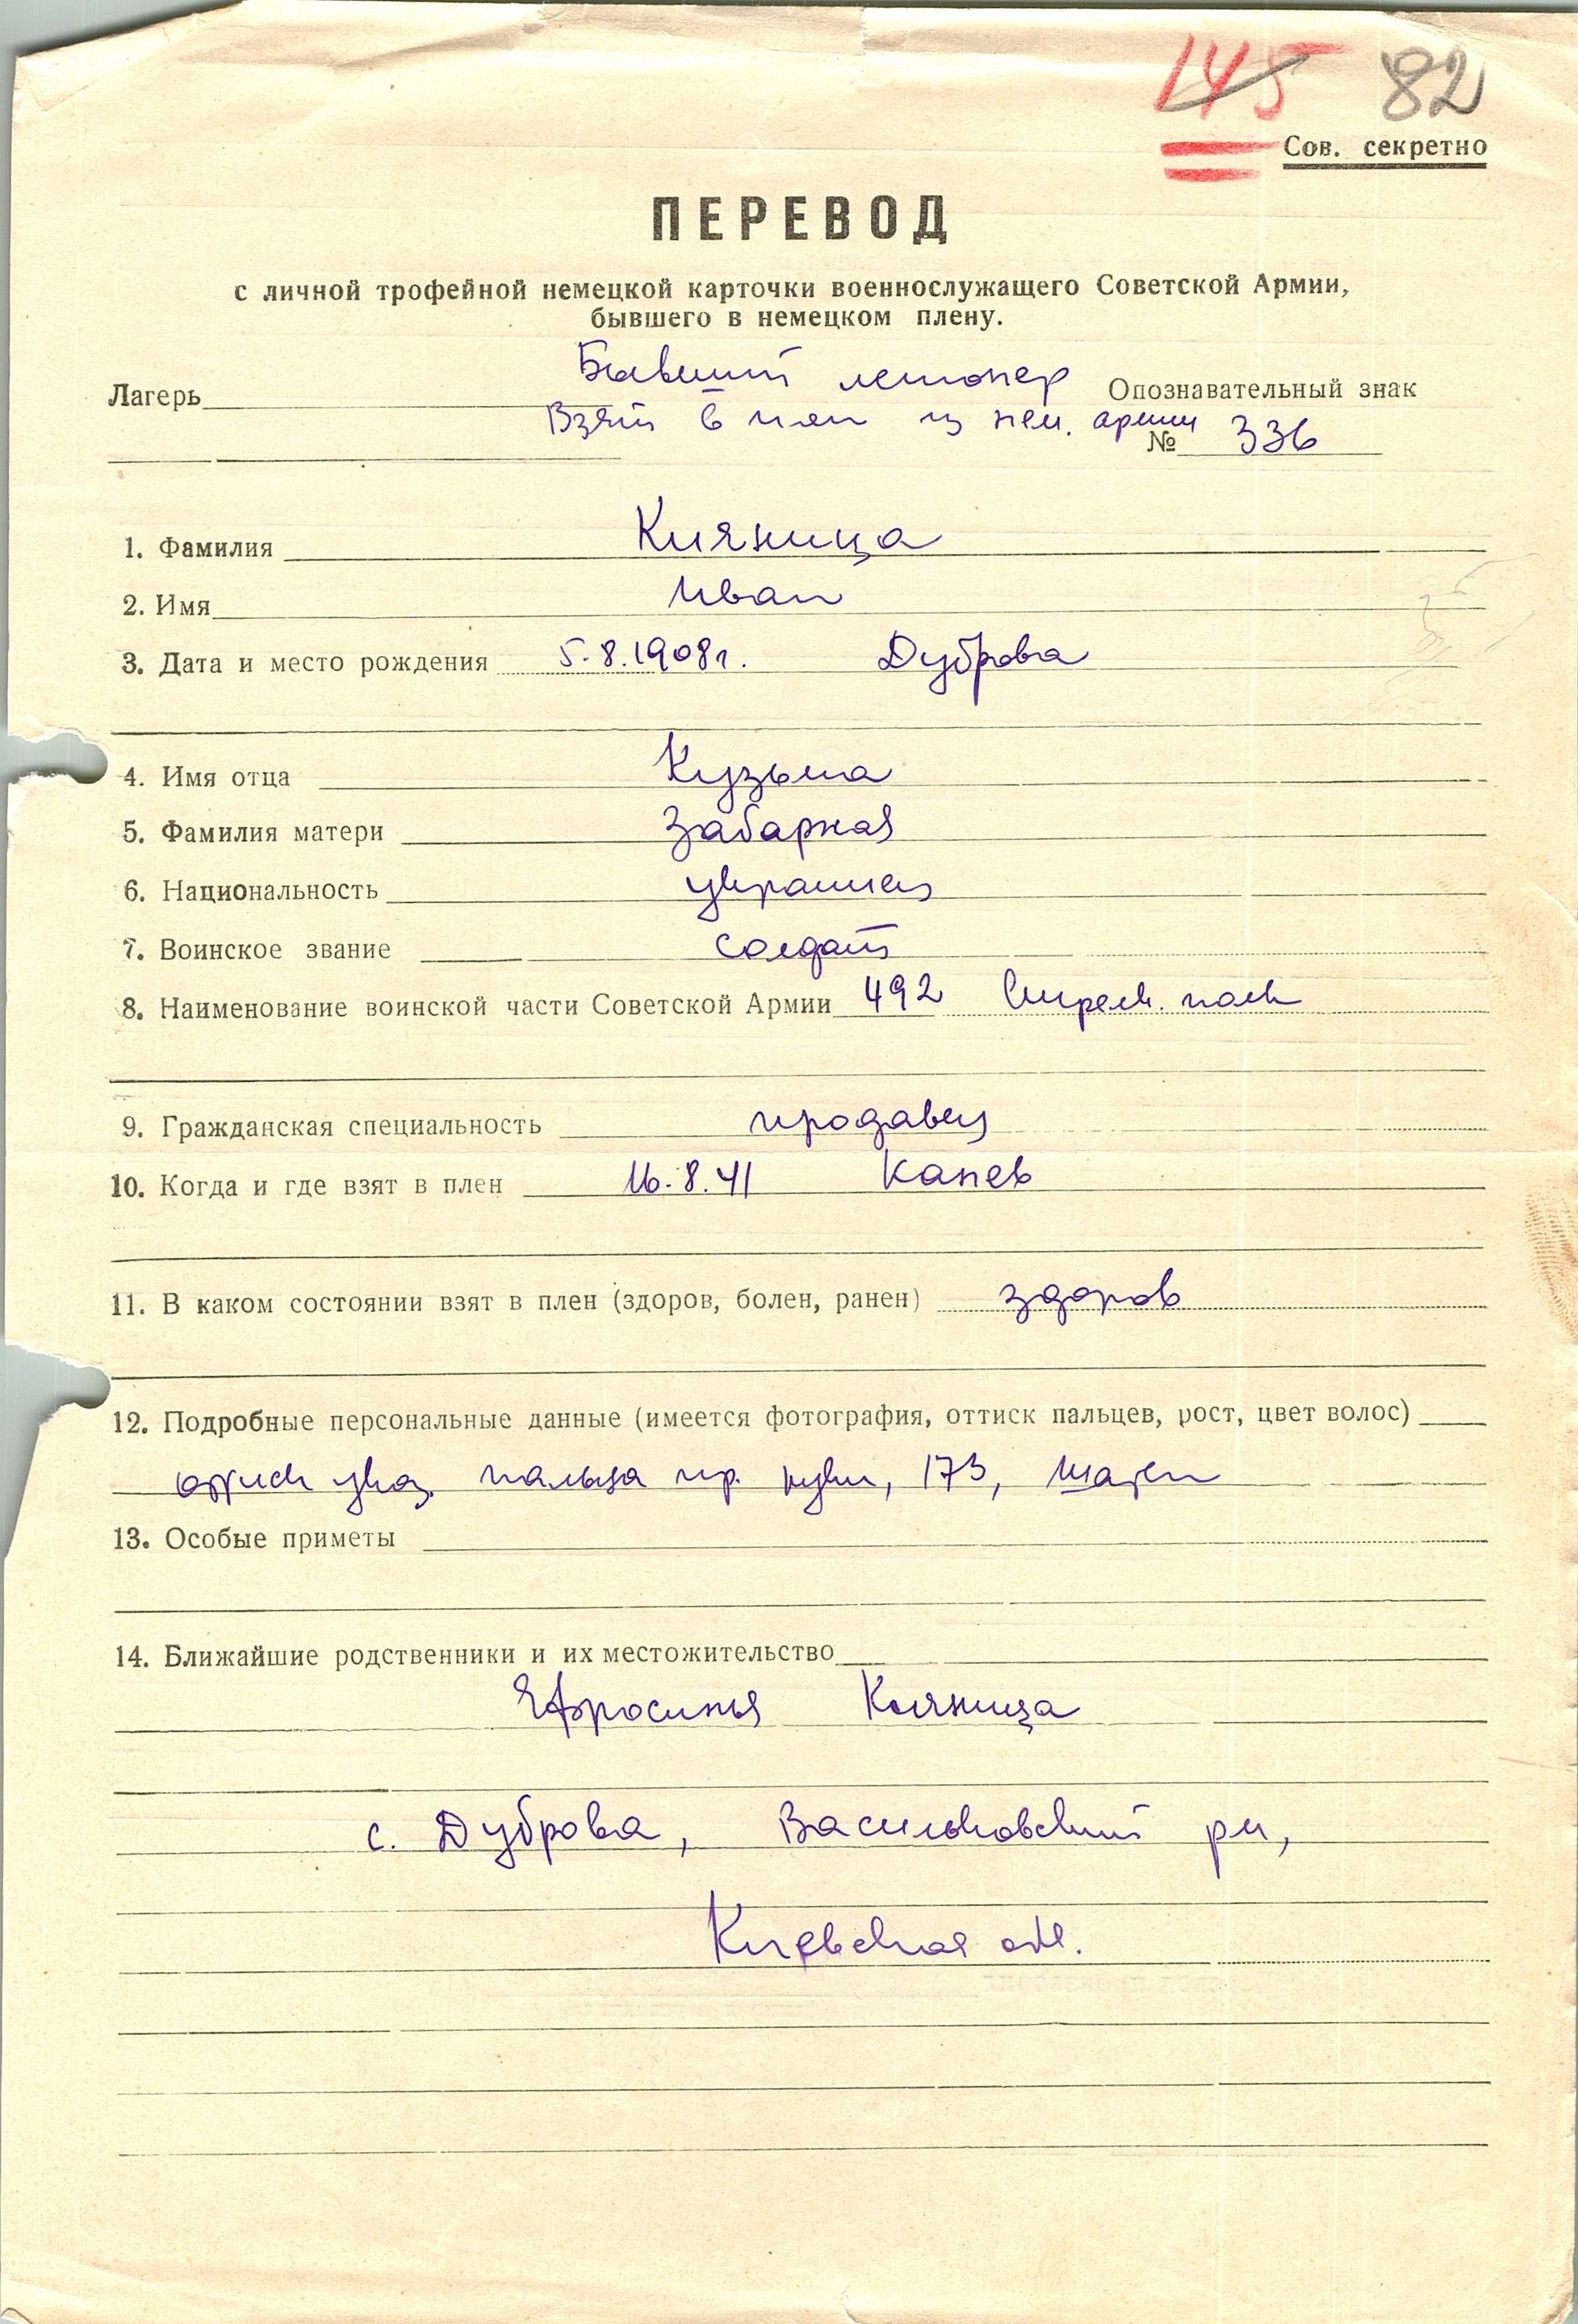 145 82
Сов. секретно
ПЕРЕВОД
с личной трофейной немецкой карточки военнослужащего Советской Армии,
бывшего в немецком плену.
Бывший легионер
Лагерь Опознавательный знак
Взят в плен из нем. армии
№ 336
1. Фамилия Кияница
2. Имя Иван
3. Дата и место рождения 5.8.1908г. Дуброва
4. Имя отца Кузьма
5. Фамилия матери Забарная
6. Национальность украинец
7. Воинское звание солдат
8. Наименование воинской части Советской Армии 492 Стрелк. полк
9. Гражданская специальность продавец
10. Когда и где взят в плен 16.8.41 Канев
11. В каком состоянии взят в плен (здоров, болен, ранен) здоров
12. Подробные персональные данные (имеется фотография, оттиск пальцев, рост, цвет волос)
оттиск указ. пальца пр. руки, 173, шатен
13. Особые приметы
14. Ближайшие родственники и их местожительство
Ефросинья Кияница
с. Дуброва, Васильковский рн,
Киевская обл.